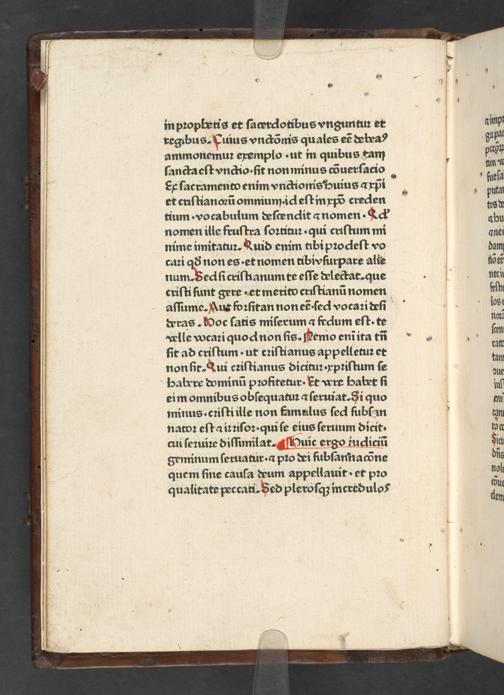 in prophetis et sacerdotibus vnguntur et
regibus. Cuius vnctōnis quales eē debeaꝰ
ammonemur exemplo · ut in quibus tam
sancta est vnctio · sit non minus cōuersacio
Ex sacramento enim vnctionis huius ⁊ xp̄i
et cristianoꝝ omnium · id est in xp̄o creden
tium · vocabulum descendit ⁊ nomen · Qd̓
nomen ille frustra sortitur · qui cristum mi
nime imitatur. Quid enim tibi prodest vo
cari qd̓ non es · et nomen tibi vsurpare alie
num. Sed si cristianum te esse delectat · que
cristi sunt gere · et merito cristianū nomen
assume. Aut forsitan non eē · sed vocari desi
deras. Hoc satis miserum ⁊ fedum est · te
velle vocari quod non sis. Nemo eni ita tm̄
sit ad cristum · ut cristianus appelletur et
non sit. Qui cristianus dicitur · xpristum se
habere dominū profitetur. Et vere habet si
ei m omnibus obsequatur ⁊ seruiat. Si quo
minus · cristi ille non famulus sed subsan
nator est ⁊ irrisor · qui se eius seruum dicit ·
cui seruire dissimilat. Huic ergo iudiciū
geminum seruatur · ⁊ pro dei subsannacōne
quem sine causa deum appellauit · et pro
qualitate peccati. Sed plerosqꝫ incredulos